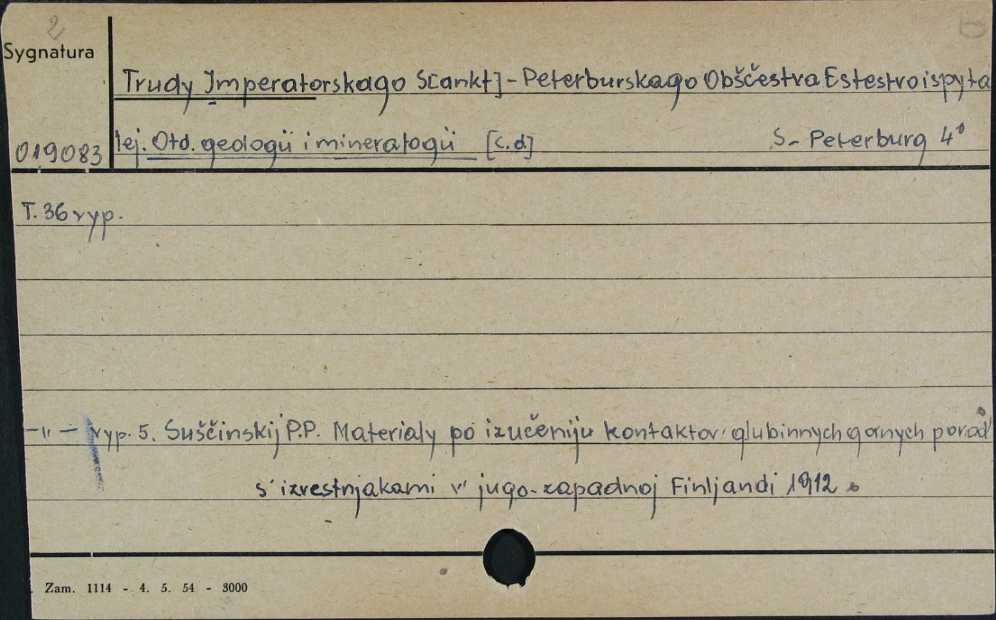 2
Sygnatura
Trudy Imperatorskago S[ankt]-Peterburskago Obščestva Estestvoispyta
019083
lej. Otd. geologii i mineralogii [c.d]
S-Peterburg 4°
T. 36 vyp.
-"- vyp. 5. Suščinskij P.P. Materialy po izučeniju kontaktov' glubinnych gornych porod'
s' izvestnjakami v' jugo-zapadnoj Finljandi 1912
Zam. 1114 - 4. 5. 54 - 3000